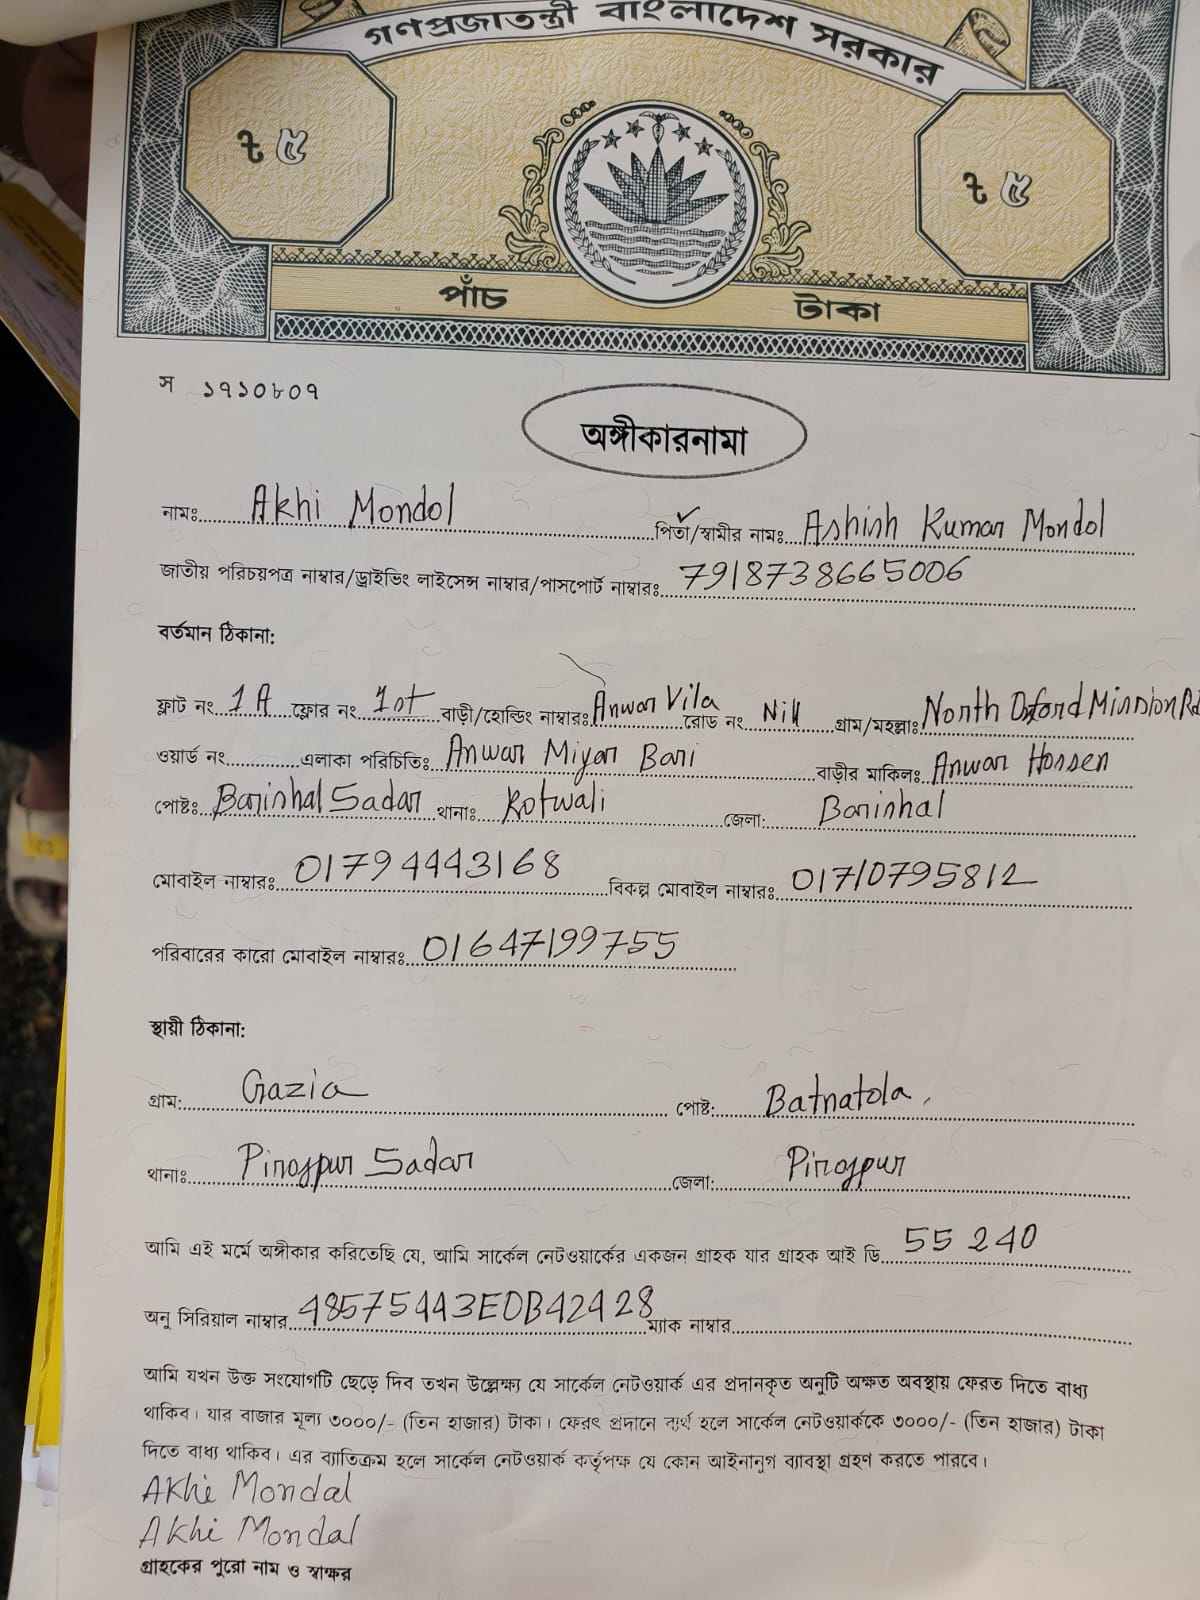 গণপ্রজাতন্ত্রী বাংলাদেশ সরকার
৳ ৫
৳ ৫
পাঁচ টাকা
স ১৭১০৮০৭
অঙ্গীকারনামা
নামঃ Akhi Mondol পিতা/স্বামীর নামঃ Ashish Kumar Mondol
জাতীয় পরিচয়পত্র নাম্বার/ড্রাইভিং লাইসেন্স নাম্বার/পাসপোর্ট নাম্বারঃ 7918738665006
বর্তমান ঠিকানা:
ফ্লাট নং 1A ফ্লোর নং 1st বাড়ী/হোল্ডিং নাম্বারঃ Anwar Vila রোড নং Nill গ্রাম/মহল্লাঃ North Oxford Mission Rd
ওয়ার্ড নং এলাকা পরিচিতিঃ Anwar Miyar Bari বাড়ীর মাকিলঃ Anwar Hossen
পোষ্টঃ Barishal Sadar থানাঃ Kotwali জেলা: Barishal
মোবাইল নাম্বারঃ 01794443168 বিকল্প মোবাইল নাম্বারঃ 01710795812
পরিবারের কারো মোবাইল নাম্বারঃ 01647199755
স্থায়ী ঠিকানা:
গ্রাম: Gazia পোষ্ট: Batnatola,
থানাঃ Pirojpur Sadar জেলা: Pirojpur
আমি এই মর্মে অঙ্গীকার করিতেছি যে, আমি সার্কেল নেটওয়ার্কের একজন গ্রাহক যার গ্রাহক আই ডি 55240
অনু সিরিয়াল নাম্বার 48575443E0B42428 ম্যাক নাম্বার
আমি যখন উক্ত সংযোগটি ছেড়ে দিব তখন উল্লেক্ষ্য যে সার্কেল নেটওয়ার্ক এর প্রদানকৃত অনুটি অক্ষত অবস্থায় ফেরত দিতে বাধ্য
থাকিব। যার বাজার মূল্য ৩০০০/- (তিন হাজার) টাকা। ফেরৎ প্রদানে ব্যর্থ হলে সার্কেল নেটওয়ার্ককে ৩০০০/- (তিন হাজার) টাকা
দিতে বাধ্য থাকিব। এর ব্যাতিক্রম হলে সার্কেল নেটওয়ার্ক কর্তৃপক্ষ যে কোন আইনানুগ ব্যাবস্থা গ্রহণ করতে পারবে।
Akhi Mondal
Akhi Mondal
গ্রাহকের পুরো নাম ও স্বাক্ষর